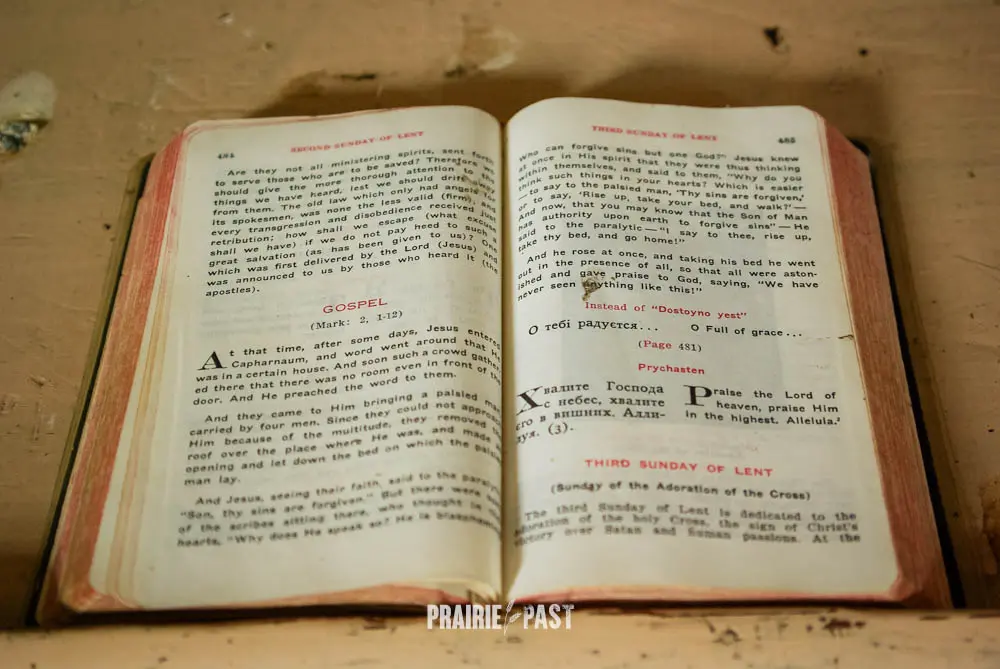 484
SECOND SUNDAY OF LENT
Are they not all ministering spirits, sent forth
to serve those who are to be saved? Therefore we
should give the more thorough attention to the
things we have heard, lest we should drift away
from them. The old law which only had angels for
its spokesmen, was none the less valid (firm), and
every transgression and disobedience received just
retribution; how shall we escape (what excuse
shall we have) if we do not pay heed to such a
great salvation (as has been given to us)? One
which was first delivered by the Lord (Jesus) and
was announced to us by those who heard it (the
apostles).
GOSPEL
(Mark: 2, 1-12)
At that time, after some days, Jesus entered
Capharnaum, and word went around that He
was in a certain house. And soon such a crowd gather-
ed there that there was no room even in front of the
door. And He preached the word to them.
And they came to Him bringing a palsied man
carried by four men. Since they could not approach
Him because of the multitude, they removed the
roof over the place where He was, and made an
opening and let down the bed on which the palsied
man lay.
And Jesus, seeing their faith, said to the paralytic,
"Son, thy sins are forgiven." But there were some
of the scribes sitting there, who thought in their
hearts, "Why does He speak so? He is blaspheming
THIRD SUNDAY OF LENT
485
Who can forgive sins but one God?" Jesus knew
at once in His spirit that they were thus thinking
within themselves, and said to them, "Why do you
think such things in your hearts? Which is easier
— to say to the palsied man, 'Thy sins are forgiven,'
or to say, 'Rise up, take your bed, and walk?'—
And now, that you may know that the Son of Man
has authority upon earth to forgive sins" — He
said to the paralytic — "I say to thee, rise up,
take thy bed, and go home!"
And he rose at once, and taking his bed he went
out in the presence of all, so that all were aston-
ished and gave praise to God, saying, "We have
never seen anything like this!"
Instead of "Dostoyno yest"
О тебі радуєтся... O Full of grace...
(Page 481)
Prychasten
Хвалите Господа
с небес, хвалите
єго в вишних. Алли-
луя. (3).
Praise the Lord of
heaven, praise Him
in the highest. Alleluia.³
THIRD SUNDAY OF LENT
(Sunday of the Adoration of the Cross)
The third Sunday of Lent is dedicated to the
adoration of the holy Cross, the sign of Christ's
victory over Satan and human passions. At the
PRAIRIE PAST